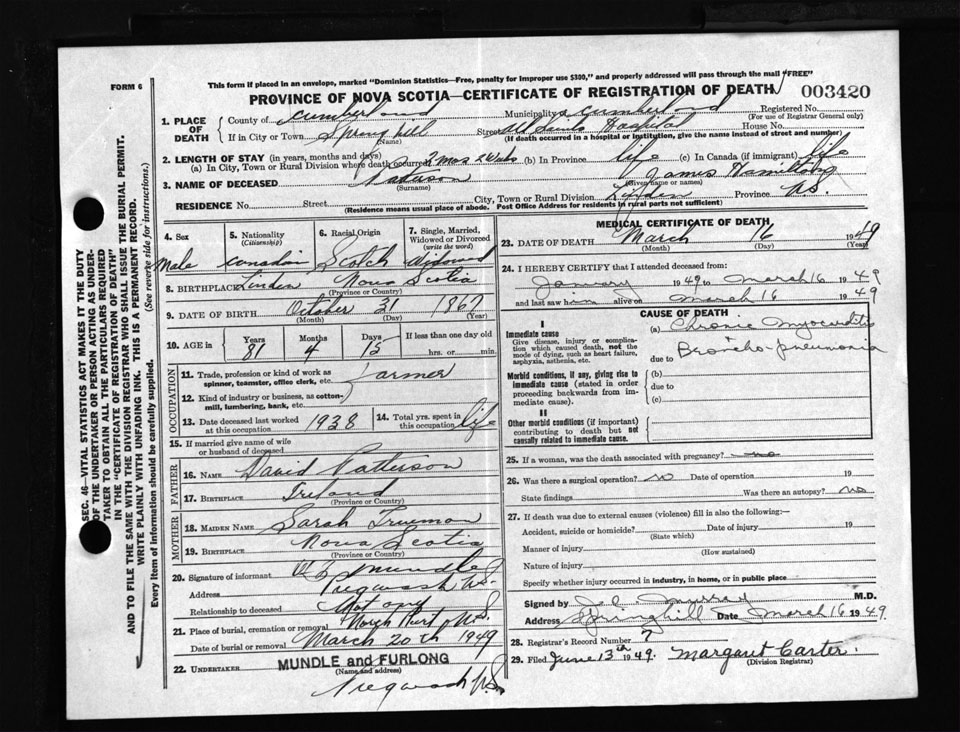 This form if placed in an envelope, marked "Dominion Statistics—Free, penalty for improper use $300," and properly addressed will pass through the mail "FREE"
FORM 6
PROVINCE OF NOVA SCOTIA—CERTIFICATE OF REGISTRATION OF DEATH
003420
1. PLACE OF DEATH
County of Cumberland
Municipality Cumberland
Registered No.
(For use of Registrar General only)
If in City or Town Springhill
(Name)
Street All Saints Hospital
House No.
(If death occurred in a hospital or institution, give the name instead of street and number)
2. LENGTH OF STAY (in years, months and days)
(a) In City, Town or Rural Division where death occurred 2 mos 2 Weeks (b) In Province life (c) In Canada (if immigrant) life
3. NAME OF DECEASED Patterson James Hamilton
(Surname) (Given name or names)
RESIDENCE No. Street City, Town or Rural Division Linden Province N.S.
(Residence means usual place of abode. Post Office Address for residents in rural parts not sufficient)
4. Sex
Male
5. Nationality
(Citizenship)
Canadian
6. Racial Origin
Scotch
7. Single, Married, Widowed or Divorced
(write the word)
Widowed
8. BIRTHPLACE Linden Nova Scotia
(Province or Country)
9. DATE OF BIRTH October 31 1867
(Month) (Day) (Year)
10. AGE in
Years Months Days If less than one day
81 4 15 hrs. or min.
OCCUPATION
11. Trade, profession or kind of work as spinner, teamster, office clerk, etc. Farmer
12. Kind of industry or business, as cotton-mill, lumbering, bank, etc.
13. Date deceased last worked at this occupation 1938
14. Total yrs. spent in this occupation life
15. If married give name of wife or husband of deceased
FATHER
16. NAME David Patterson
17. BIRTHPLACE Ireland
(Province or Country)
MOTHER
18. MAIDEN NAME Sarah Trueman
19. BIRTHPLACE Nova Scotia
(Province or Country)
20. Signature of informant Mundle
Address Pugwash N.S.
Relationship to deceased Not any
21. Place of burial, cremation or removal North Port N.S.
Date of burial or removal March 20th 1949
22. UNDERTAKER MUNDLE and FURLONG
(Name and address)
Pugwash N.S.
MEDICAL CERTIFICATE OF DEATH
23. DATE OF DEATH March 16 1949
(Month) (Day) (Year)
24. I HEREBY CERTIFY that I attended deceased from:
January 1949 to March 16 1949
and last saw him alive on March 16 1949
CAUSE OF DEATH
I
Immediate cause
Give disease, injury or complication which caused death, not the mode of dying, such as heart failure, asphyxia, asthenia, etc.
(a) Chronic Myocarditis
due to Broncho-pneumonia
Morbid conditions, if any, giving rise to immediate cause (stated in order proceeding backwards from immediate cause).
(b)
due to
(c)
II
Other morbid conditions (if important) contributing to death but not causally related to immediate cause.
25. If a woman, was the death associated with pregnancy? no
26. Was there a surgical operation? no Date of operation 19
State findings Was there an autopsy? no
27. If death was due to external causes (violence) fill in also the following:—
Accident, suicide or homicide? Date of injury 19
(State which)
Manner of injury
(How sustained)
Nature of injury
Specify whether injury occurred in industry, in home, or in public place
Signed by Murray M.D.
Address Springhill Date March 16 1949
28. Registrar's Record Number 7
29. Filed June 13th 1949. Margaret Carter.
(Division Registrar)
SEC. 46—VITAL STATISTICS ACT MAKES IT THE DUTY
OF THE UNDERTAKER OR PERSON ACTING AS UNDER-
TAKER TO OBTAIN ALL THE PARTICULARS REQUIRED
IN THE "CERTIFICATE OF REGISTRATION OF DEATH"
AND TO FILE THE SAME WITH THE DIVISION REGISTRAR WHO SHALL ISSUE THE BURIAL PERMIT.
WRITE PLAINLY WITH UNFADING INK. THIS IS A PERMANENT RECORD.
(See reverse side for instructions.)
Every item of information should be carefully supplied.